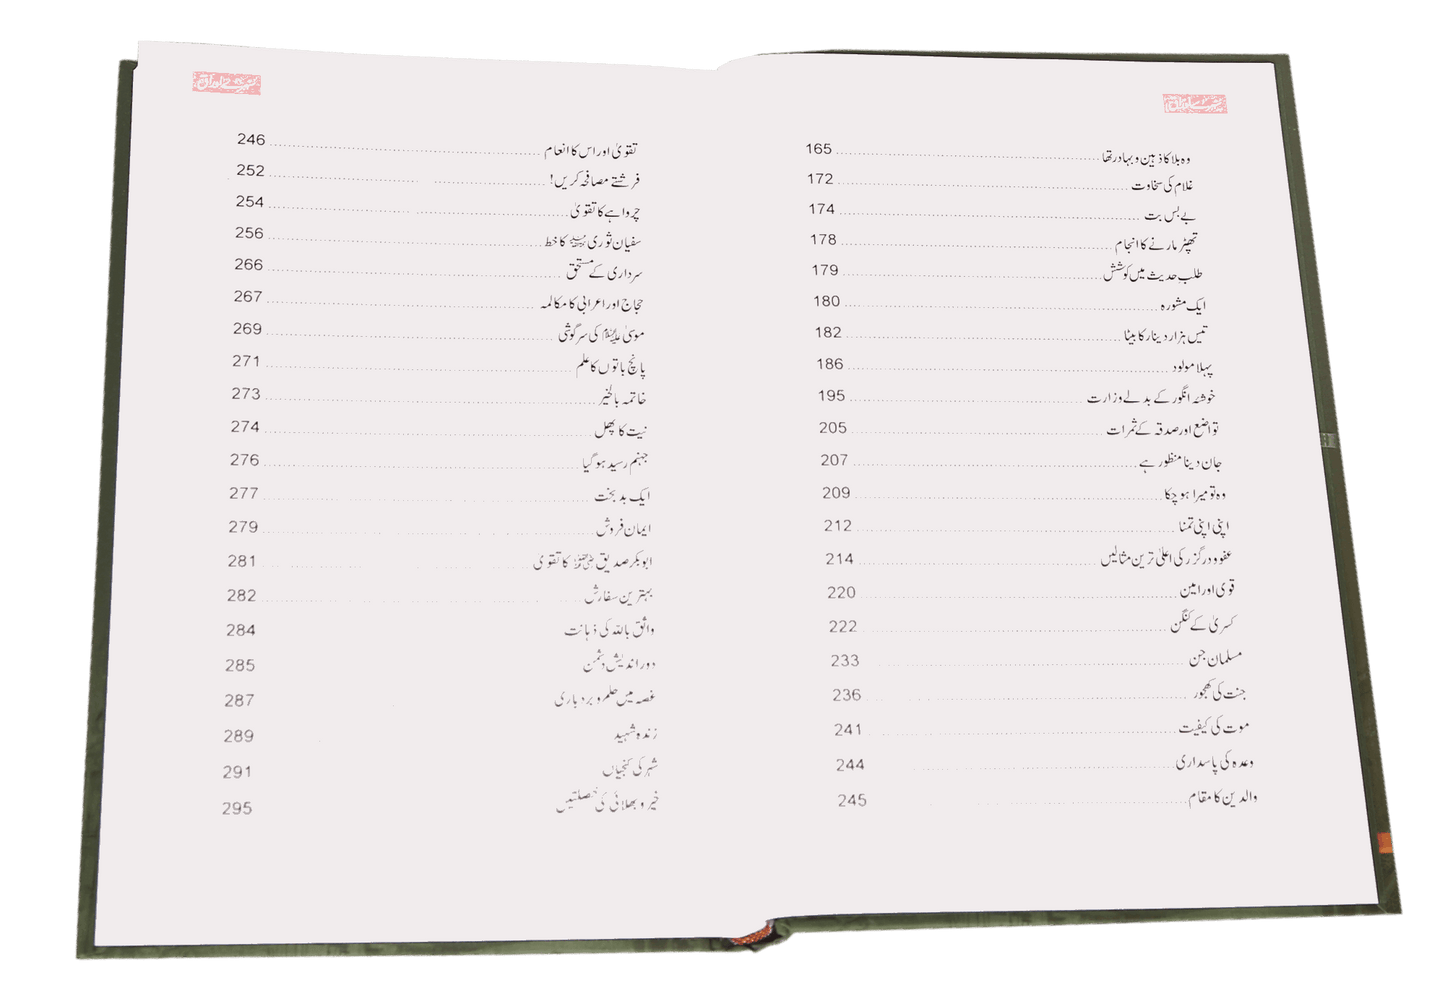 سنہرے اوراق
وہ بلا کا ذہین و بہادر تھا 165
غلام کی سخاوت 172
بے بس بت 174
تھپڑ مارنے کا انجام 178
طلبِ حدیث میں کوشش 179
ایک مشورہ 180
تیس ہزار دینار کا بیٹا 182
پہلا مولود 186
خوشہ انگور کے بدلے وزارت 195
تواضع اور صدقہ کے ثمرات 205
جان دینا منظور ہے 207
وہ تو میرا ہو چکا 209
اپنی اپنی تمنا 212
عفو و درگزر کی اعلیٰ ترین مثالیں 214
قوی اور امین 220
کسریٰ کے کنگن 222
مسلمان جن 233
جنت کی کھجور 236
موت کی کیفیت 241
وعدہ کی پاسداری 244
والدین کا مقام 245
سنہرے اوراق
تقویٰ اور اس کا انعام 246
فرشتے مصافحہ کریں! 252
چرواہے کا تقویٰ 254
سفیان ثوری رحمہ اللہ کا خط 256
سرداری کے مستحق 266
حجاج اور اعرابی کا مکالمہ 267
موسیٰ علیہ السلام کی سرگوشی 269
پانچ باتوں کا علم 271
خاتمہ بالخیر 273
نیت کا پھل 274
جہنم رسید ہو گیا 276
ایک بد بخت 277
ایمان فروش 279
ابوبکر صدیق رضی اللہ عنہ کا تقویٰ 281
بہترین سفارش 282
واثق باللہ کی ذہانت 284
دور اندیش دشمن 285
غصہ میں حلم و بردباری 287
زندہ شہید 289
شہر کی کنجیاں 291
خیر و بھلائی کی خصلتیں 295